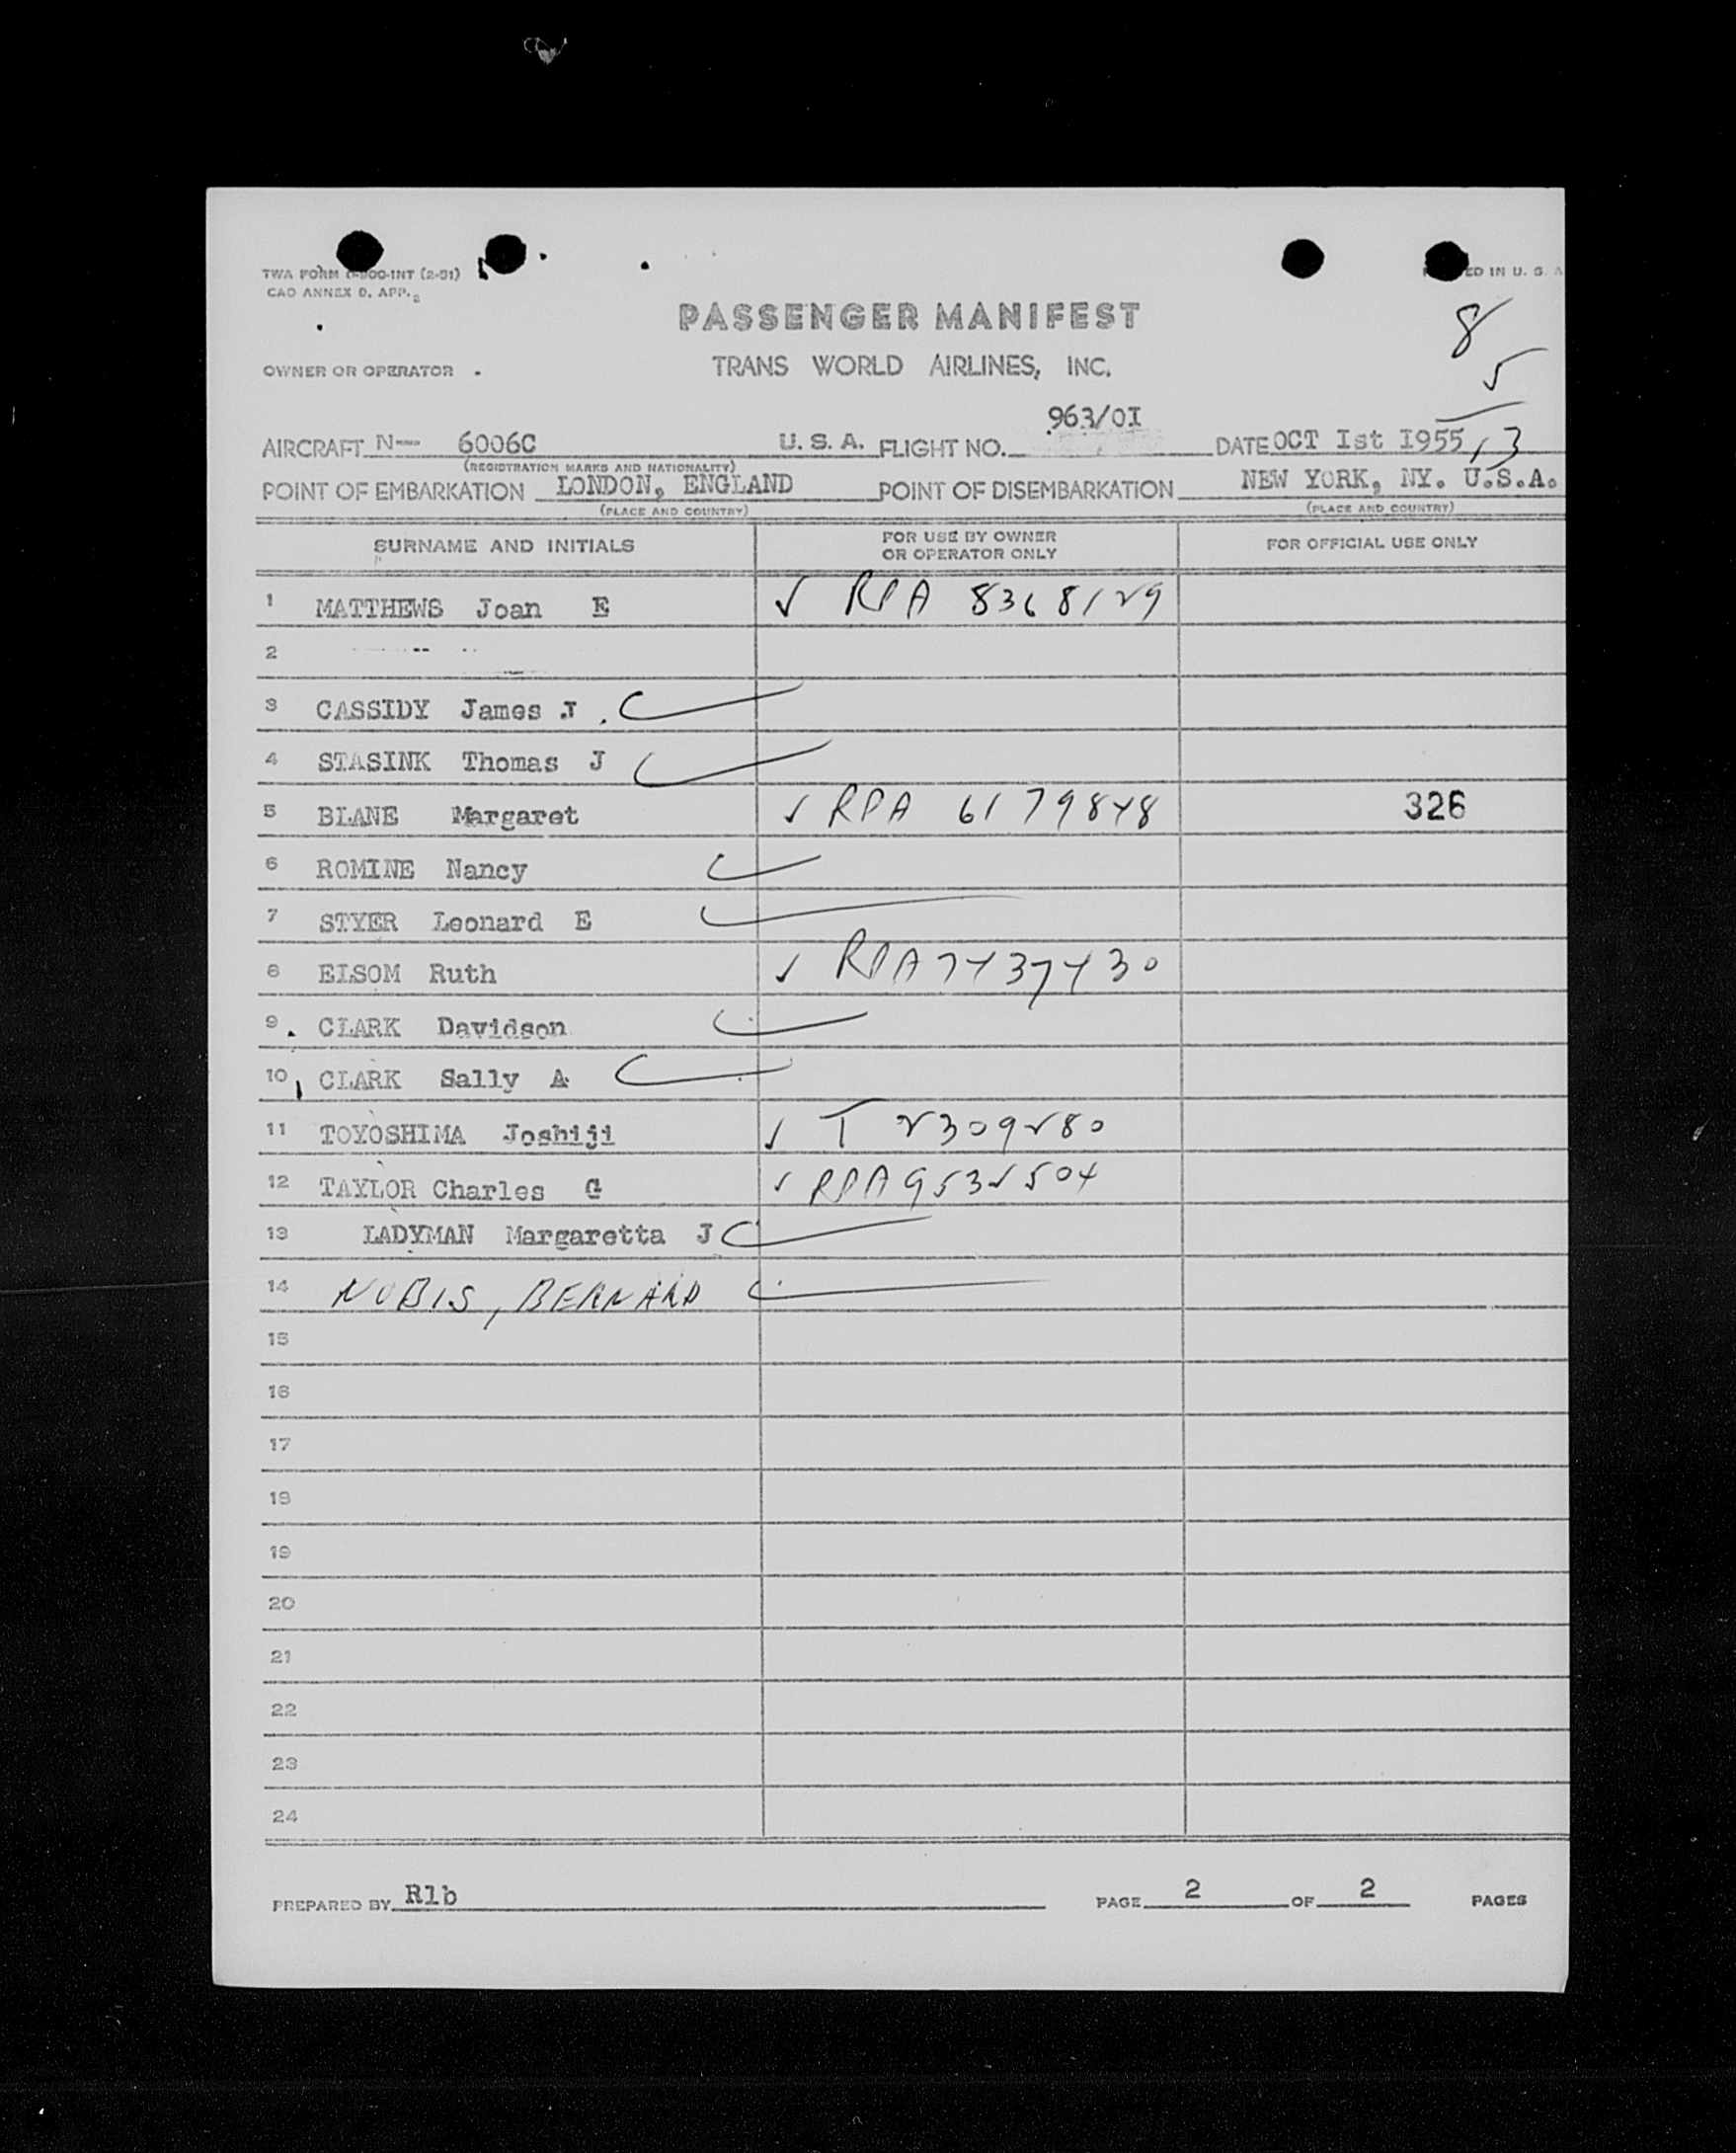 TWA FORM
CAO ANNEX D. APP.
ED IN U. S. A
PASSENGER MANIFEST
8
OWNER OR OPERATOR
TRANS WORLD AIRLINES, INC.
5
963/0I
AIRCRAFT N--- 6006C U. S. A. FLIGHT NO. DATE OCT Ist I955 13
(REGISTRATION MARKS AND NATIONALITY)
POINT OF EMBARKATION LONDON, ENGLAND POINT OF DISEMBARKATION NEW YORK, NY. U.S.A.
(PLACE AND COUNTRY) (PLACE AND COUNTRY)
SURNAME AND INITIALS FOR USE BY OWNER OR OPERATOR ONLY FOR OFFICIAL USE ONLY
1 MATTHEWS Joan E ✓ RPA 8368129
2
3 CASSIDY James J
4 STASINK Thomas J
5 BLANE Margaret ✓ RPA 6179848 326
6 ROMINE Nancy
7 STYER Leonard E
8 ELSOM Ruth ✓ RPA 7437430
9 CLARK Davidson
10 CLARK Sally A
11 TOYOSHIMA Joshiji ✓ T 2309280
12 TAYLOR Charles G ✓ RPA 9532504
13 LADYMAN Margaretta J
14 NOBIS, BERNARD
15
16
17
18
19
20
21
22
23
24
PREPARED BY Rlb PAGE 2 OF 2 PAGES